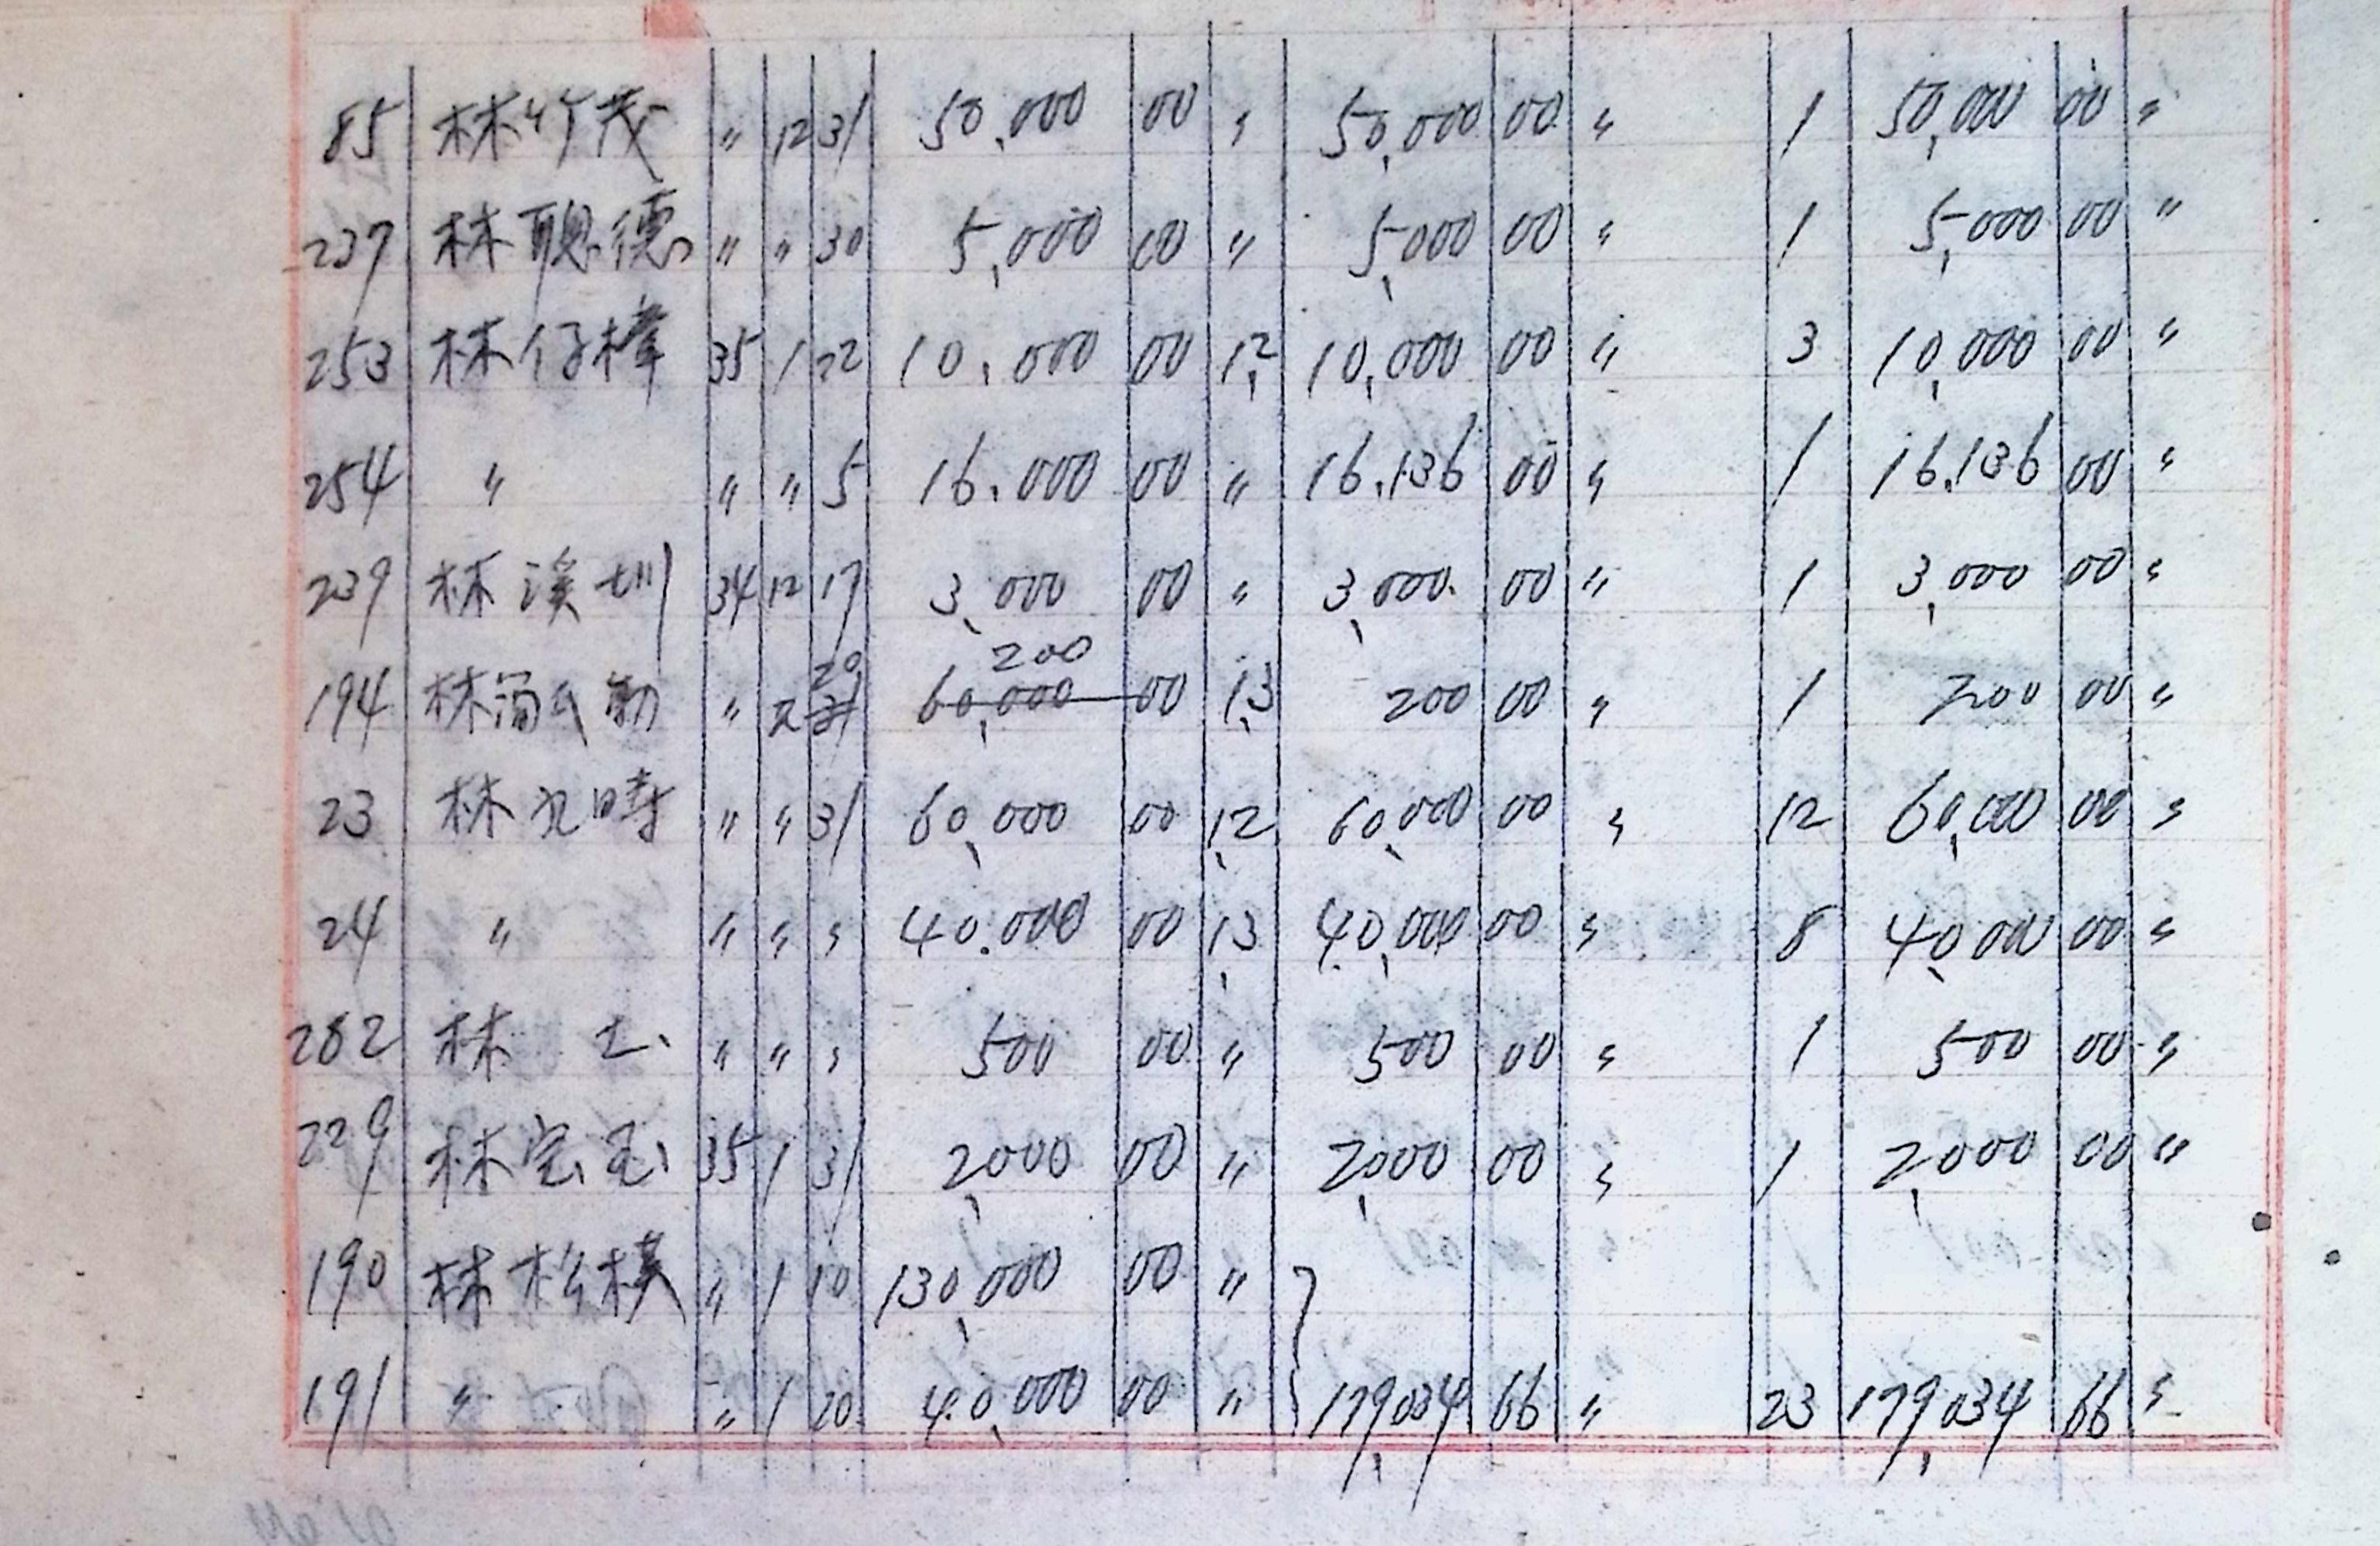 85 林竹茂 〃 12 31 50,000 00 〃 50,000 00 〃 1 50,000 00 〃
237 林聰德 〃 〃 30 5,000 00 〃 5,000 00 〃 1 5,000 00 〃
253 林仔樟 35 1 22 10,000 00 1,2 10,000 00 〃 3 10,000 00 〃
254 〃 〃 〃 5 16,000 00 〃 16,136 00 〃 1 16,136 00 〃
239 林溪圳 34 12 17 3,000 00 〃 3,000 00 〃 1 3,000 00 〃
20 200
194 林 〃 12 31 60,000 00 1,3 200 00 〃 1 200 00 〃
23 林 時 〃 〃 31 60,000 00 1,2 60,000 00 〃 12 60,000 00 〃
24 〃 〃 〃 〃 40,000 00 1,3 40,000 00 〃 8 40,000 00 〃
282 林 〃 〃 〃 500 00 〃 500 00 〃 1 500 00 〃
229 林宝玉 35 1 31 2,000 00 〃 2,000 00 〃 1 2,000 00 〃
190 林松模 〃 1 10 130,000 00 〃
191 〃 〃 1 20 40,000 00 〃 179,034 66 〃 23 179,034 66 〃